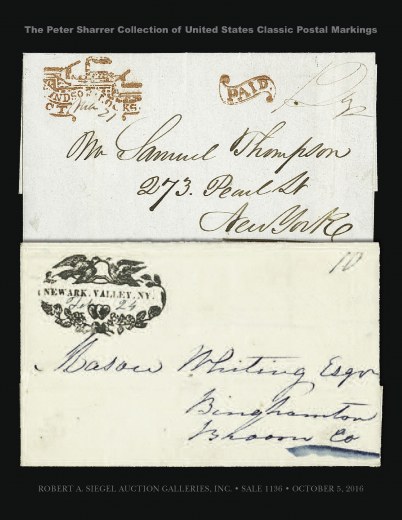 The Peter Sharrer Collection of United States Classic Postal Markings
WINDSOR LOCKS
CT.
PAID
Mr Samuel Thompson
273. Pearl St
New York
10
NEWARK. VALLEY. NY.
24
Mason Whiting Esqr
Binghamton
Broom Co
ROBERT A. SIEGEL AUCTION GALLERIES, INC. • SALE 1136 • OCTOBER 5, 2016